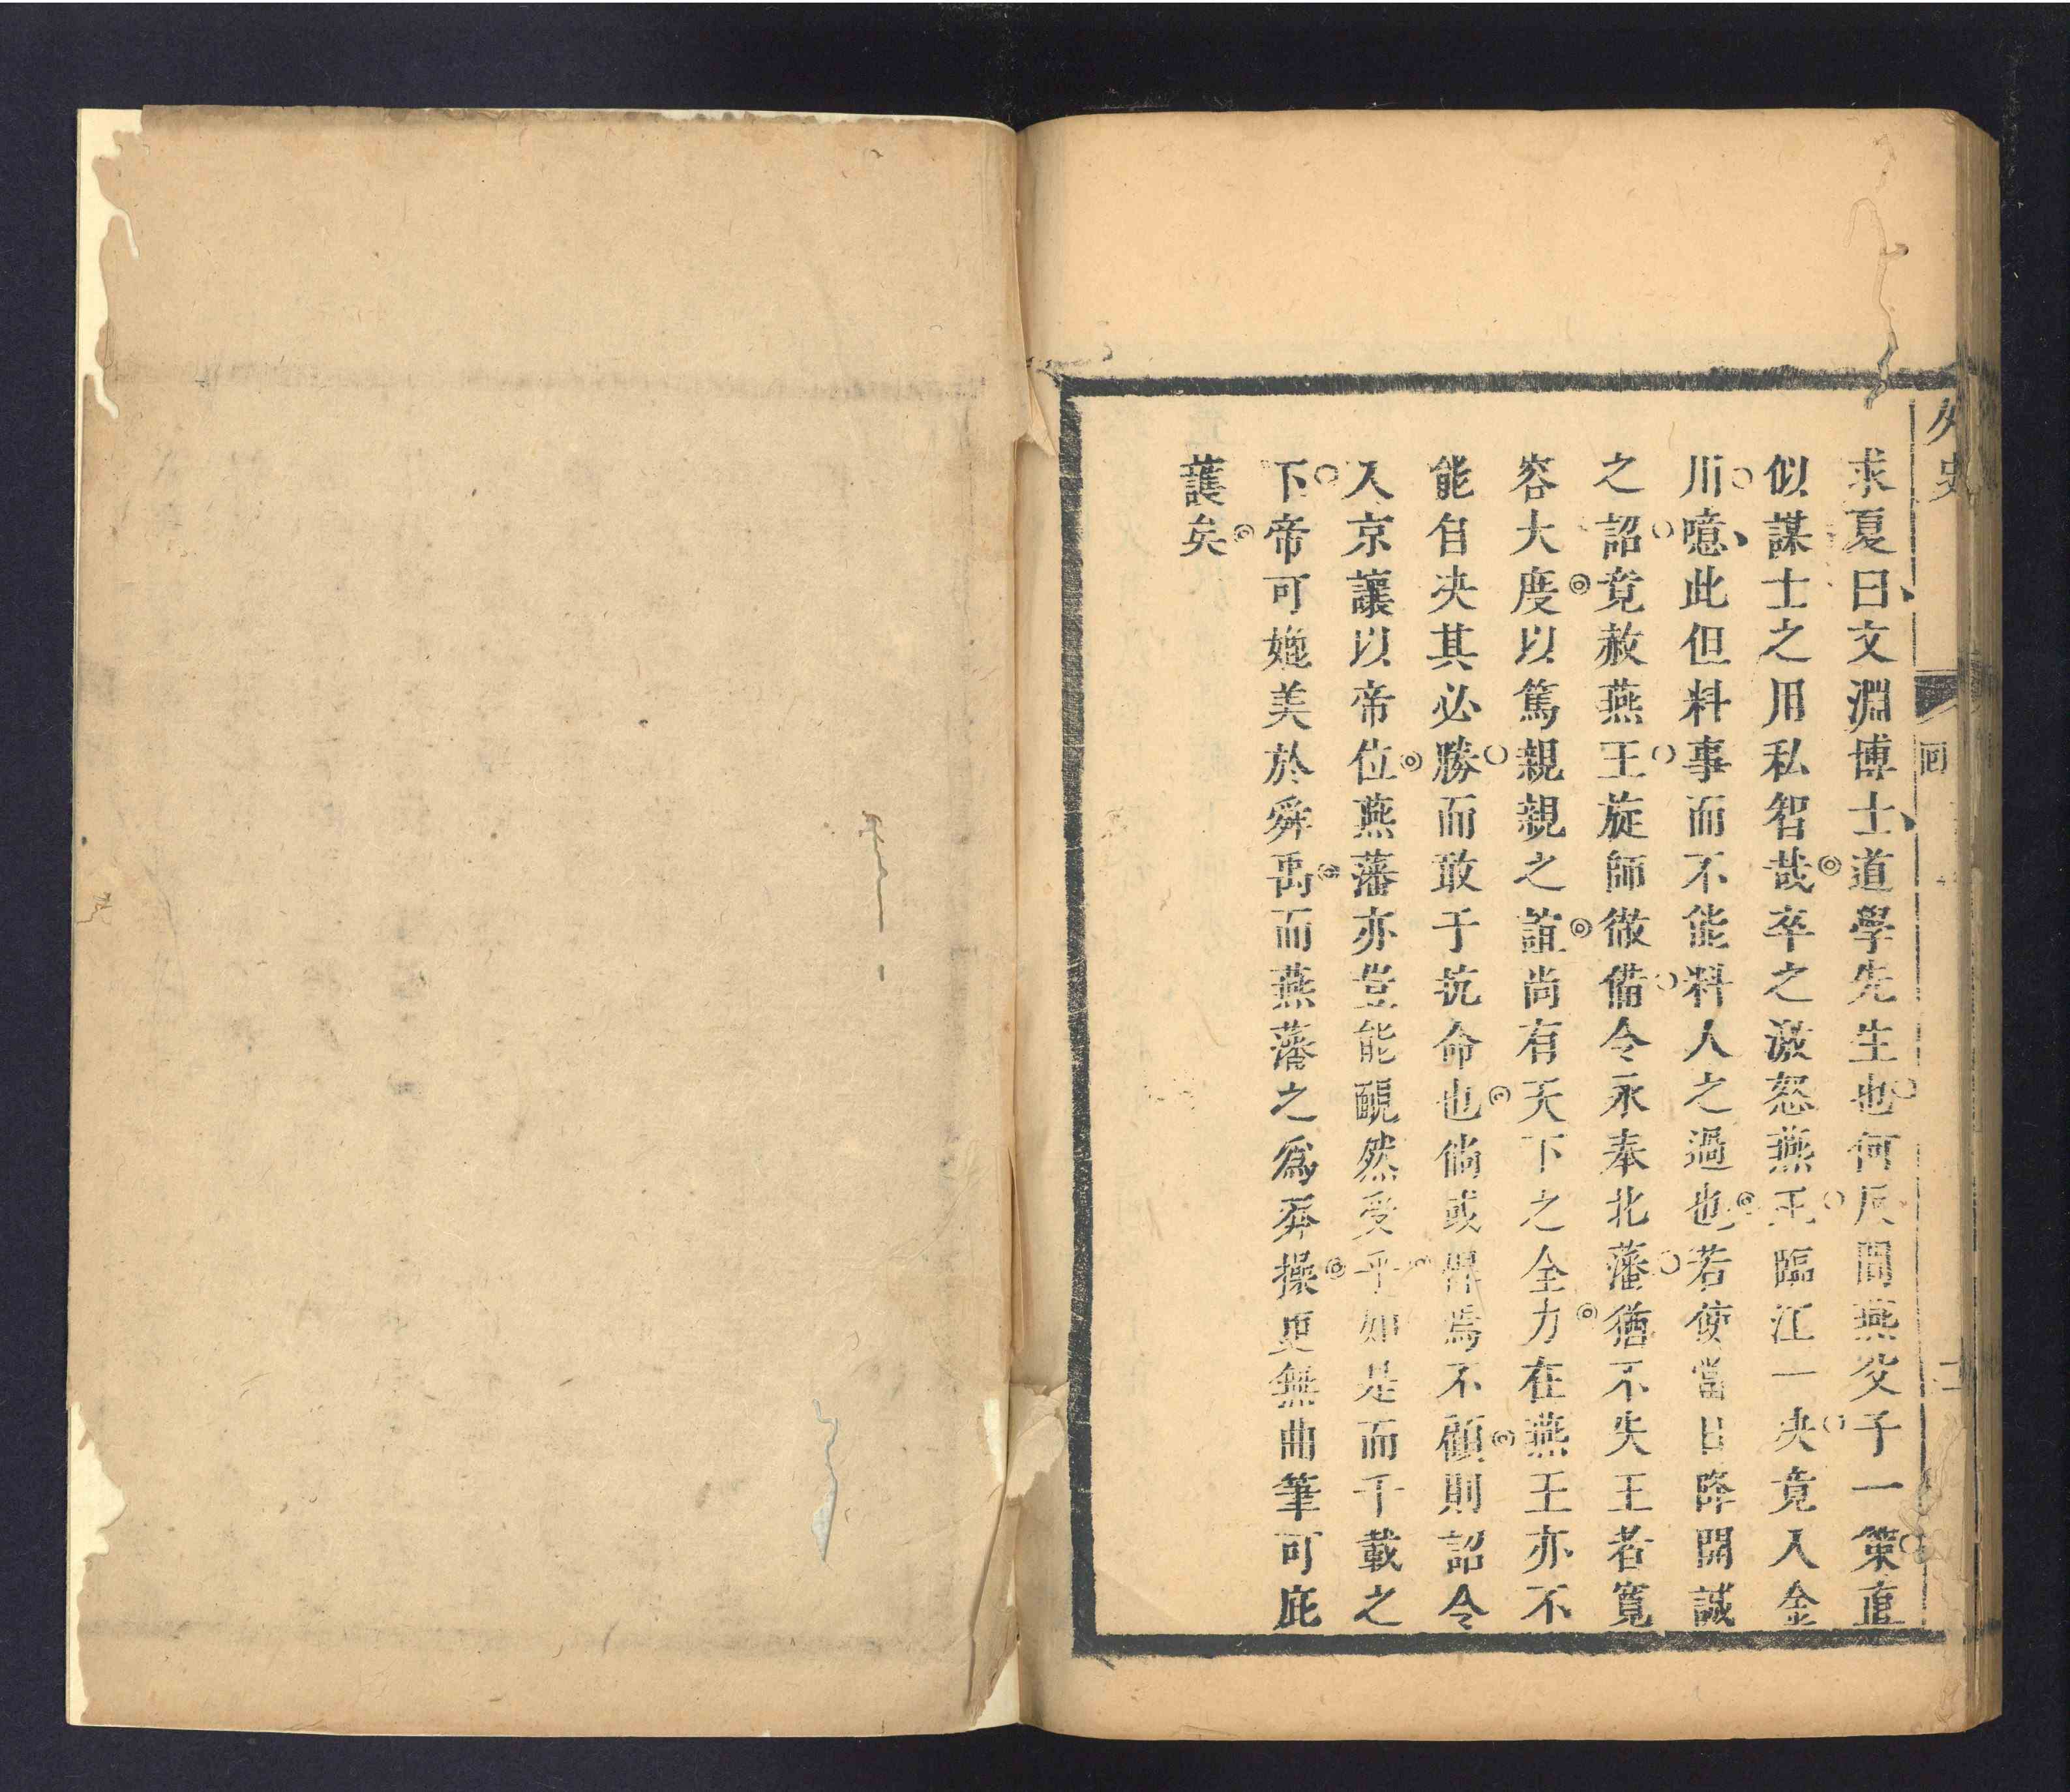 外史
回
求夏曰文淵博士道學先生也何反間燕父子一策直
似謀士之用私智哉卒之激怒燕王臨江一决竟入金
川噫此但料事而不能料人之過也若使當日降開誠
之詔竟赦燕王旋師徹備令永奉北藩猶不失王者寬
容大度以篤親親之誼尚有天下之全力在燕王亦不
能自决其必勝而敢于抗命也倘或罔焉不顧則詔令
入京讓以帝位燕藩亦豈能靦然受乎如是而千載之
下帝可媲美於舜禹而燕藩之爲莽操更無曲筆可庇
護矣